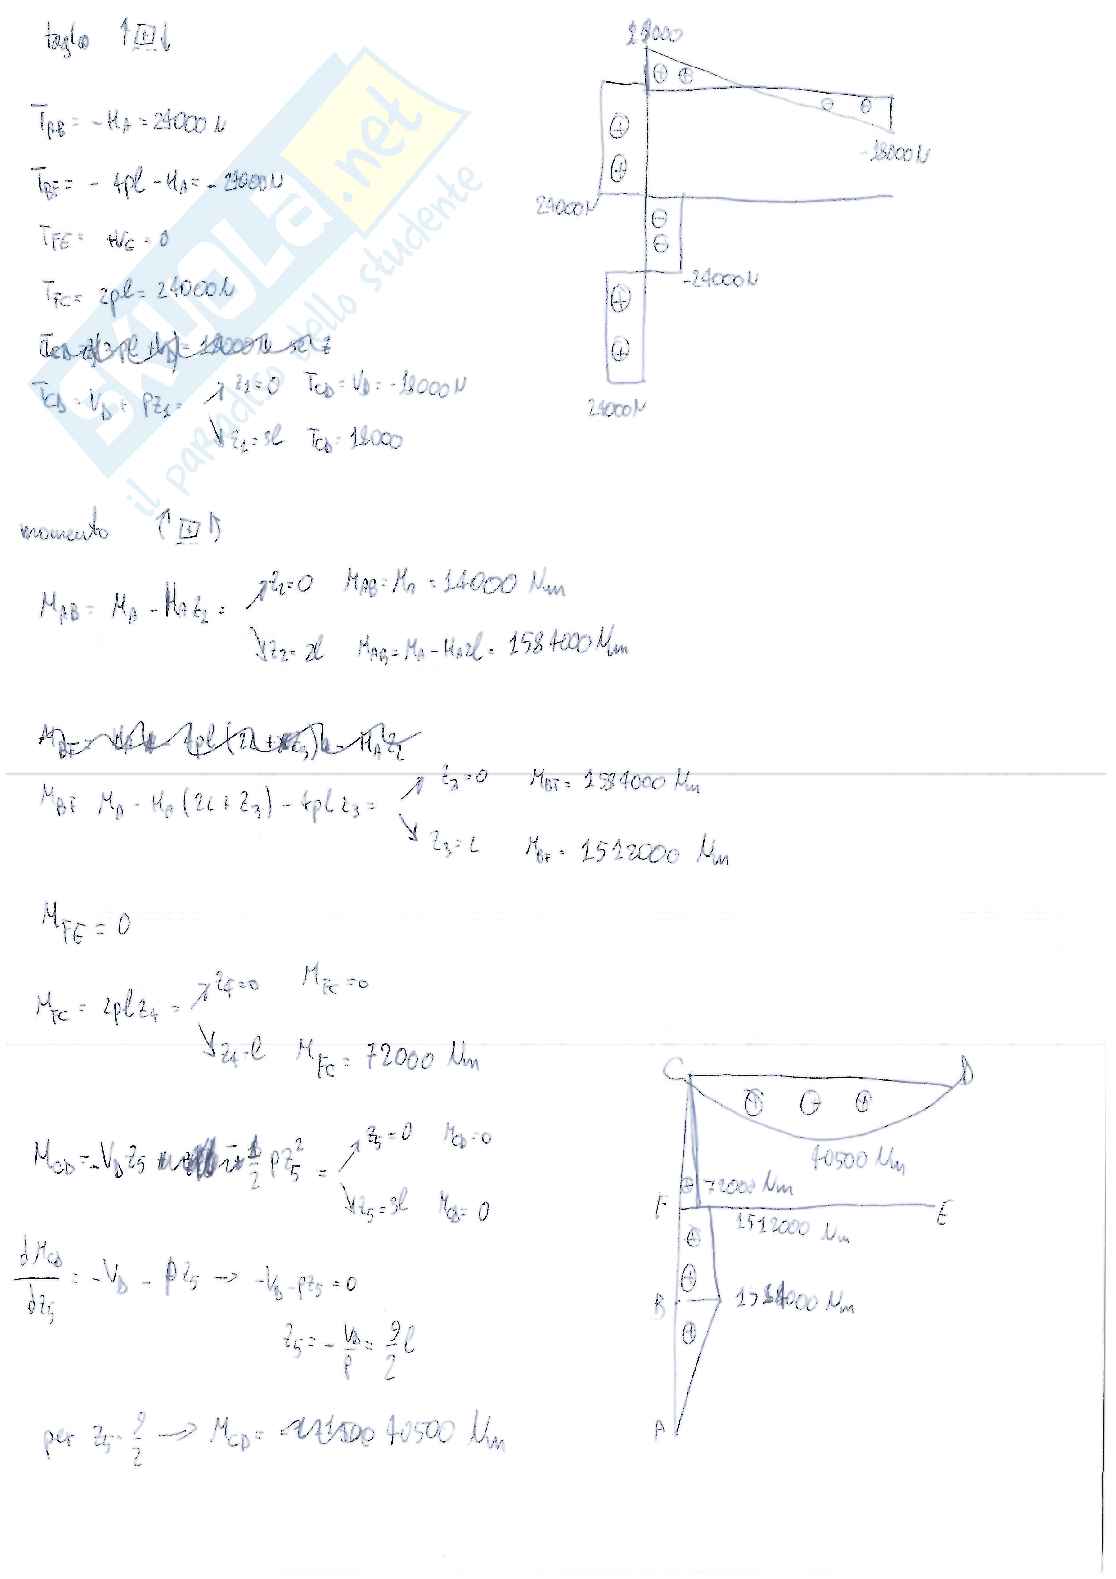 taglio ↑[+]↓
T_AB = - H_A = 24000 N
T_BF = - 4pl - H_A = - 24000 N
T_FE = H_E = 0
T_FC = 2pl = 24000 N
T_CD = V_D + pz_1 =
z_1 = 0 T_CD = V_D = - 18000 N
z_2 = 3l T_CD = 18000
18000
-18000 N
24000 N
-24000 N
24000 N
SKUOLA.net
il paradiso dello studente
momento ↑[+]↑
M_AB = M_A - H_A z_2 =
z_2 = 0 M_AB = M_A = 14000 Nm
z_2 = 2l M_AB = M_A - H_A 2l = 1584000 Nm
M_BF M_A - H_A (2l + z_3) - 4pl z_3 =
z_3 = 0 M_BF = 1584000 Nm
z_3 = l M_BF = 1512000 Nm
M_FE = 0
M_FC = 2pl z_4 =
z_4 = 0 M_FC = 0
z_4 = l M_FC = 72000 Nm
M_CD = - V_D z_5 - 1/2 p z_5^2 =
z_5 = 0 M_CD = 0
z_5 = 3l M_CD = 0
dM_CD/dz_5 = - V_D - pz_5 → - V_D - pz_5 = 0
z_5 = - V_D/p = 9/2 l
per z_5 = 9/2 → M_CD = 40500 Nm
C
D
40500 Nm
72000 Nm
F
E
1512000 Nm
B
A